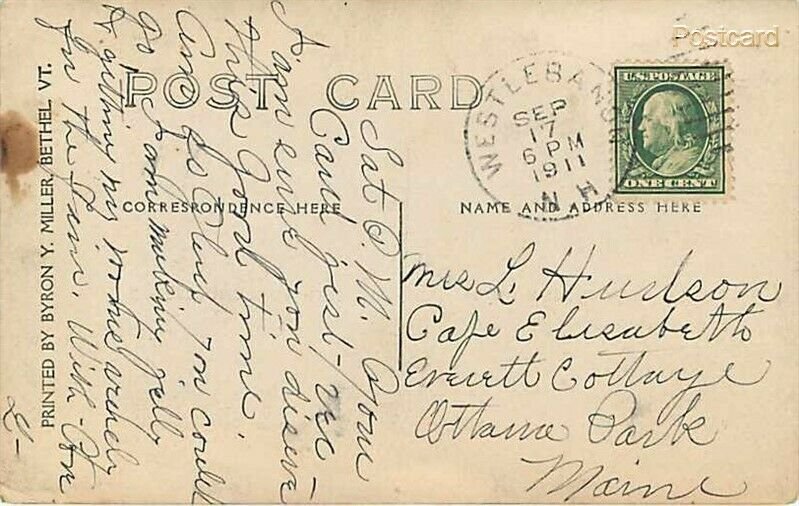 Postcard
POST CARD
WEST LEBANON
SEP
17
6 PM
1911
N.H.
U.S. POSTAGE
ONE CENT
CORRESPONDENCE HERE
NAME AND ADDRESS HERE
PRINTED BY BYRON Y. MILLER, BETHEL VT.
Sat P.M.
Card just rec
I am sure you diserve
this Good time.
Am so Glad you could
go I am making jelly
& getting my
In the Jams. With Love
L-
Mrs L. Hudson
Cape Elisabeth
Everett Cottage
Ottawa Park
Maine